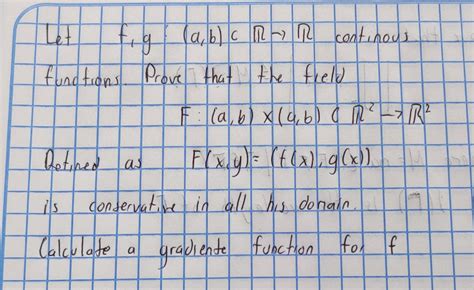 Let f, g : (a,b) ⊂ ℝ → ℝ continous
functions. Prove that the field
F : (a,b) × (a,b) ⊂ ℝ² → ℝ²
Defined as F(x,y) = (f(x), g(x))
is conservative in all his domain.
Calculate a gradiente function for f